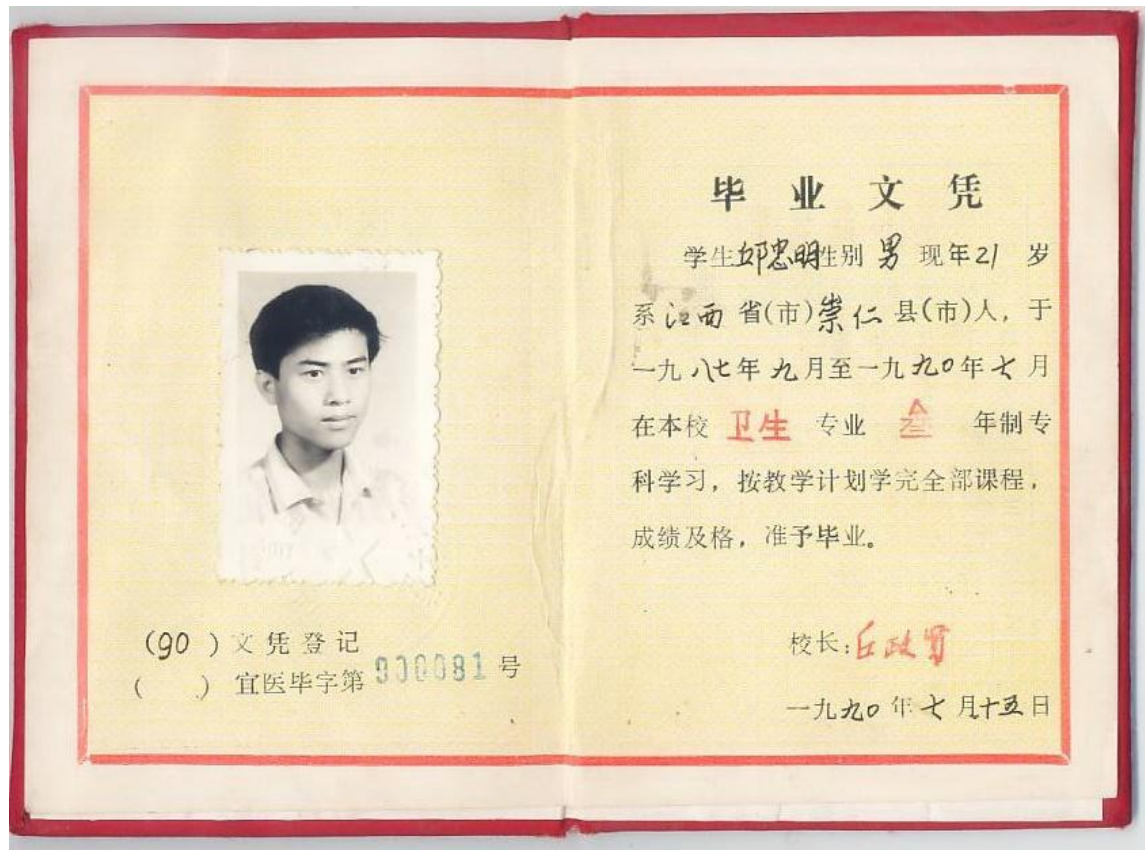 (90) 文凭登记
( ) 宜医毕字第900081号
毕业文凭
学生邱忠明性别男现年21岁
系江西省(市)崇仁县(市)人，于
一九八七年九月至一九九〇年七月
在本校卫生专业叁年制专
科学习，按教学计划学完全部课程，
成绩及格，准予毕业。
校长:丘政
一九九〇年七月十五日